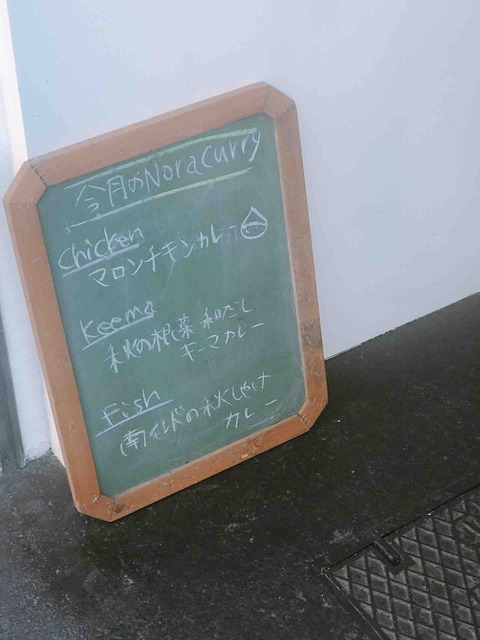 今月のNoracurry
Chicken
マロンチキンカレー
Keema
秋の根菜和だし
キーマカレー
Fish
南インドの秋しゃけ
カレー